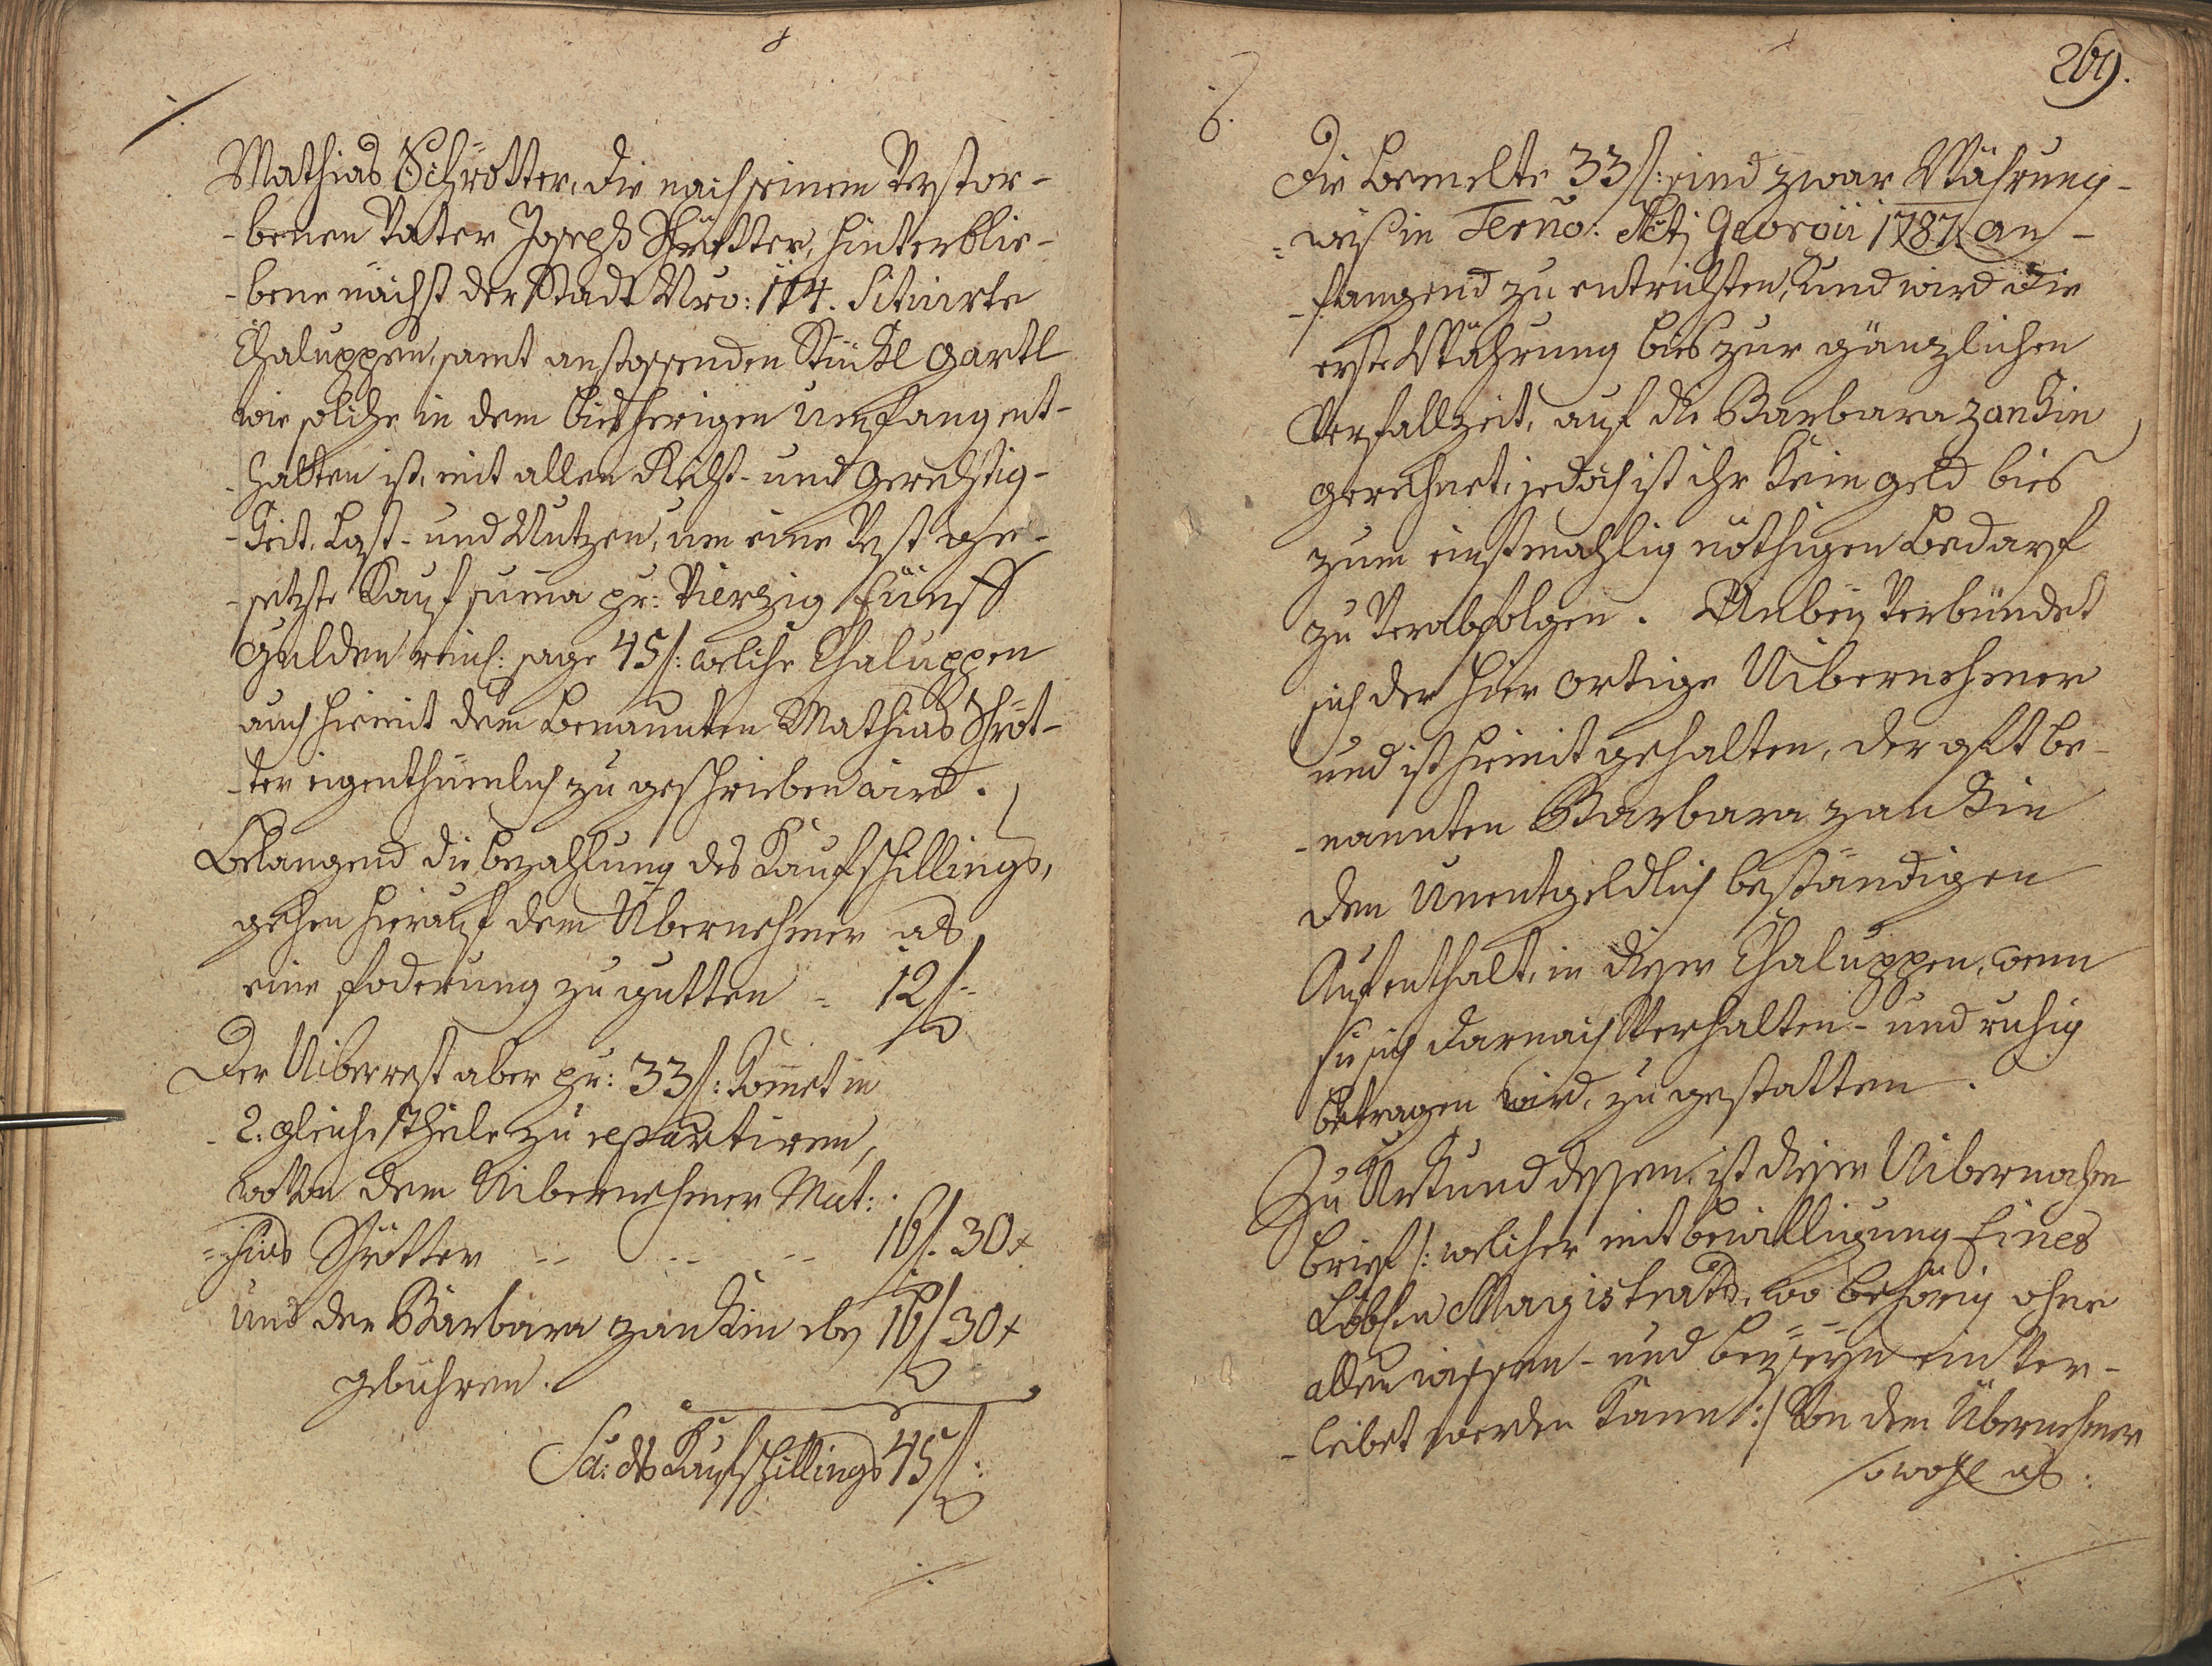 Mathias Schrötter, die nach seinem Verstor-
-benen Vater Joseph Schrötter, hinterblie-
-bene nächst der Stadt Nro: 114. Situirte
Chaluppen, samt anstossenden Stückl Gartl
wie solche in dem bisherigen Umfang ent-
-halten ist, mit allen Recht- und Gerechtig-
-keit, Last- und Nutzen, um eine Vest ge-
-setzte Kauf suma pr: Vierzig fünff
Gulden reinl: sage 45 f: welche Chaluppen
auch hiemit dem benannten Mathias Schröt-
-ter eigenthümlich zu geschrieben wird.
Belangend die bezahlung des Kaufschillings,
gehen hierauf dem Übernehmer als
eine foderung zu gutten - 12 f-
Der Uiberrest aber pr: 33 f: kömet in
- 2. gleiche Theile zu repartiren,
wovon dem Uibernehmer Mat:
=hias Schrötter -- -- -- 16 f. 30 x
und der Barbara zankin eben 16 f 30 x
gebühren.
Sa: des Kaufschillings 45 f:
./.
269.
6.
Die bemelte 33 f: sind zwar Währung-
=weiß in Termo: Scti Georgii 1787 an-
-fangend zu entrichten, und wird die
erste Währung bis zur gänzlichen
Verfallzeit, auf die Barbara zankin
gerechnet, jedoch ist ihr kein geld bies
zum einstmahlig nöthigen Bedarf
zu Verabfolgen. Anbey Verbündet
sich der hier ortige Uibernehmer
und ist hiemit gehalten, der oft be-
-nannten Barbara zankin
den Unentgeldlich beständigen
Aufenthalt, in dieser Chaluppen, wenn
sie sich darnach Verhalten- und ruhig
betragen wird, zu gestatten.
Zu Urkund dessen, ist dieser Uibernahm
brief /: welcher mit bewilligung Eines
Löbln Magistrats, wo behörig ohne
allen wissen- und beyseyn einver-
-leibet werden kann :/ Von dem Übernehmer
sowohl als:
./.